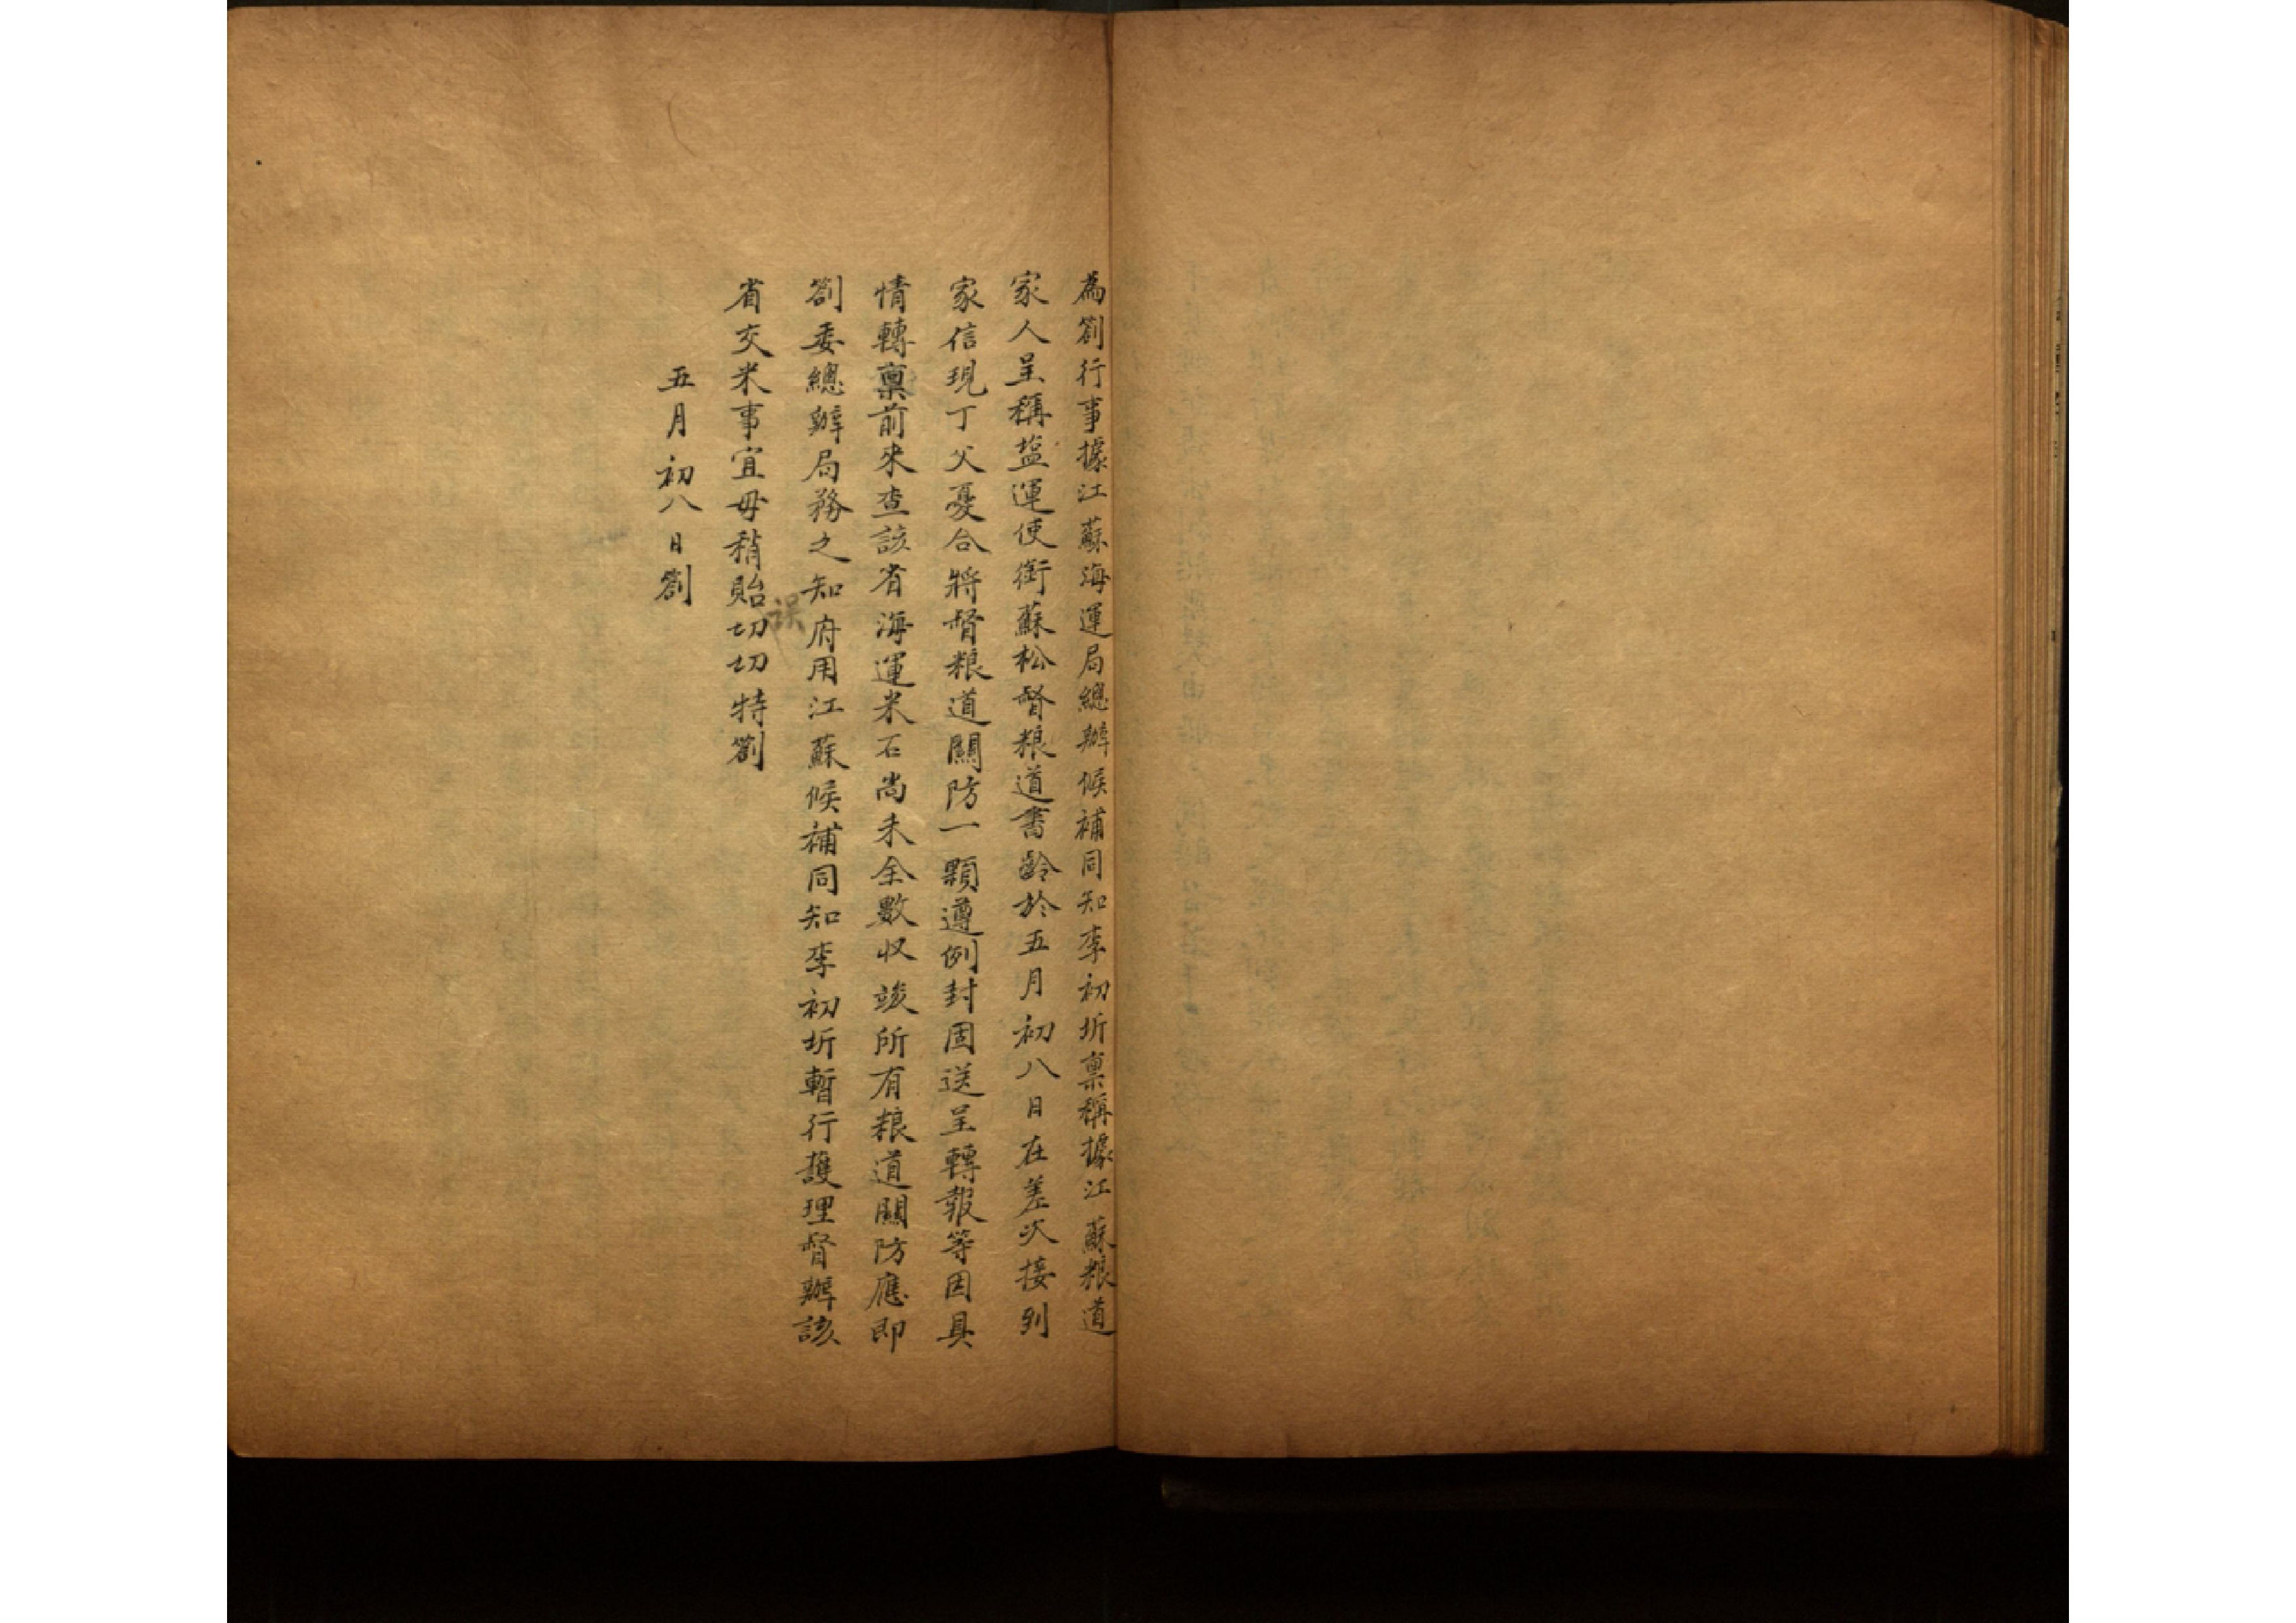 為劄行事據江蘇海運局總辦候補同知李初圻稟稱據江蘇粮道
家人呈稱塩運使銜蘇松督粮道書齡於五月初八日在差次接到
家信現丁父憂合將督粮道關防一顆遵例封固送呈轉報等因具
情轉稟前來查該省海運米石尚未全數収竣所有粮道關防應即
劄委總辦局務之知府用江蘇候補同知李初圻暫行護理督辦該
省交米事宜毋稍貽誤切切特劄
五月初八日劄